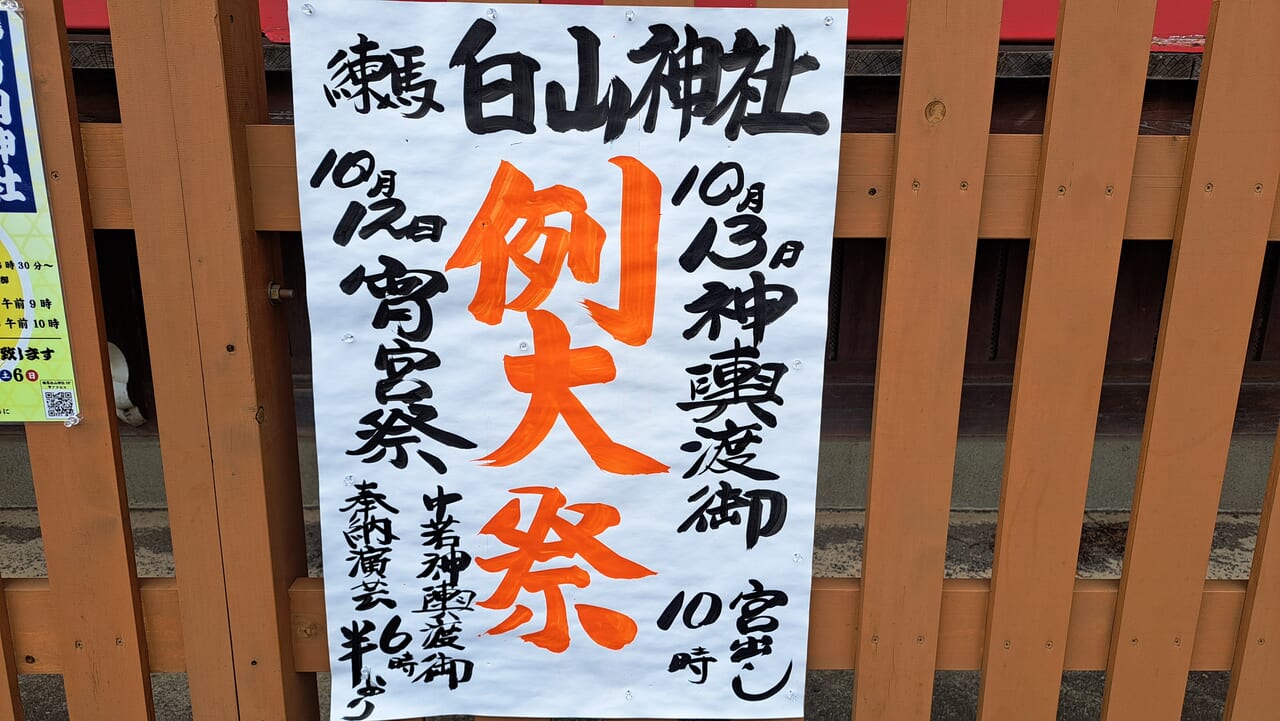 練馬 白山神社
例大祭
10月
13日
神輿渡御
宮出し
10時
10月
12日
宵宮祭
中若神輿渡御
奉納演芸
6時
半より
日神社
時30分〜
午前9時
午前10時
致します
土6日